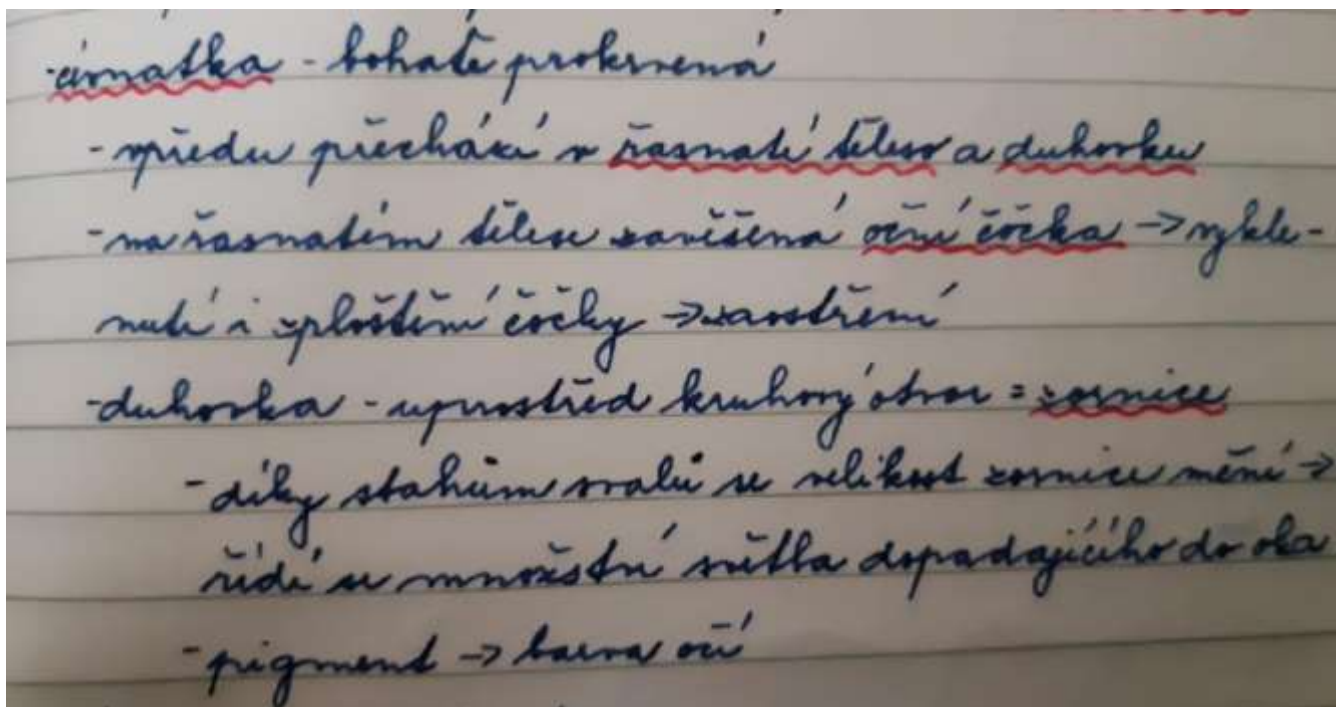 -cévnatka - bohatě prokrvená
- vpředu přechází v řasnaté těleso a duhovku
- na řasnatém tělese zavěšená oční čočka → vykle-
nutí i zploštění čočky → zaostření
- duhovka - uprostřed kruhový otvor = zornice
- díky stahům svalů se velikost zornice mění →
řídí se množství světla dopadajícího do oka
- pigment → barva očí